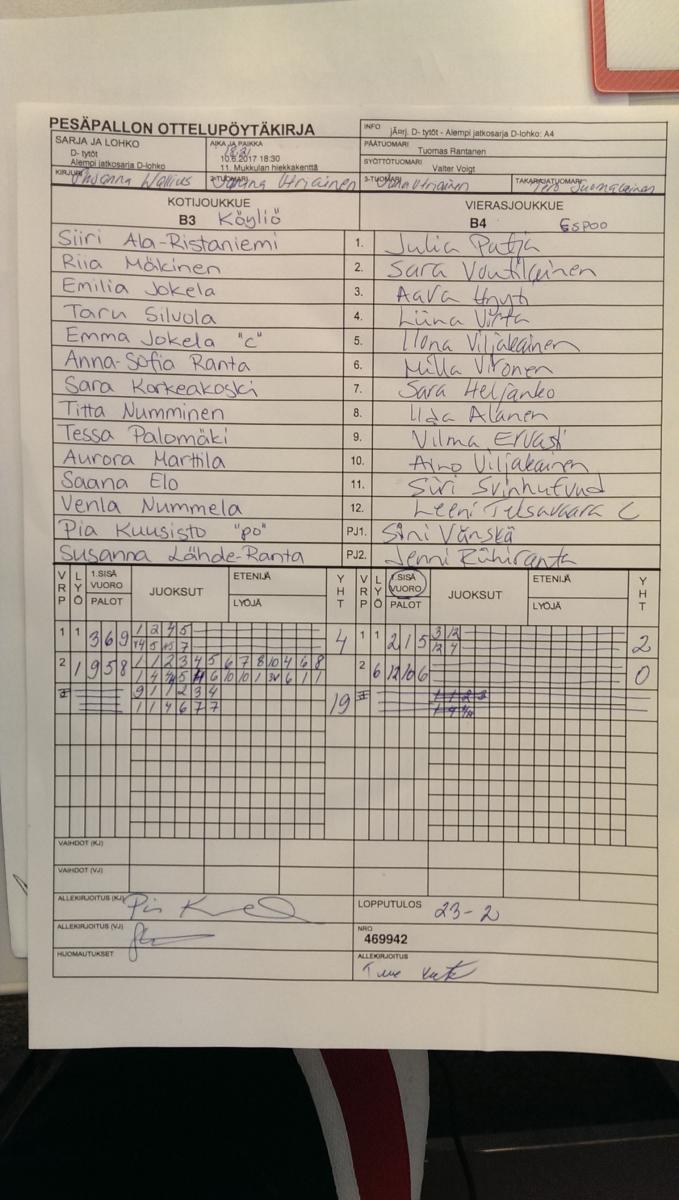 PESÄPALLON OTTELUPÖYTÄKIRJA
INFO jÄ¤rj. D- tytöt - Alempi jatkosarja D-lohko: A4
SARJA JA LOHKO
D- tytöt
Alempi jatkosarja D-lohko
AIKA JA PAIKKA
18:21
10.6.2017 18:30
11. Mukkulan hiekkakenttä
PÄÄTUOMARI
Tuomas Rantanen
SYÖTTÖTUOMARI
Valter Voigt
KIRJURI Wallius 2-TUOMARI 3-TUOMARI TAKARAJATUOMARI
KOTIJOUKKUE
B3 Köyliö
VIERASJOUKKUE
B4 ESPOO
Siiri Ala-Ristaniemi 1. Julia Patja
Riia Mäkinen 2. Sara Voutilainen
Emilia Jokela 3. Aava
Taru Silvola 4. Liina Virta
Emma Jokela "C" 5. Ilona Viljakainen
Anna-Sofia Ranta 6. Milla Vironen
Sara Korkeakoski 7. Sara Heljanko
Titta Numminen 8. Iida Alanen
Tessa Palomäki 9. Vilma Ervasti
Aurora Marttila 10. Aino Viljakainen
Saana Elo 11. Siiri Svinhufvud
Venla Nummela 12. Leeni C
Pia Kuusisto "po" PJ1. Sini Vänskä
Susanna Lähde-Ranta PJ2. Jenni
VRP LYÖ 1.SISÄ VUORO PALOT JUOKSUT ETENIJÄ LYÖJÄ YHT VRP LYÖ 1.SISÄ VUORO PALOT JUOKSUT ETENIJÄ LYÖJÄ YHT
1 1 3 6 9 1 2 4 5 4 1 1 2 1 5 3 12 2
5 7 12 4
2 1 9 5 8 1 1 2 3 4 5 6 7 8 10 4 6 8 2 6 12 10 6 0
9 1 1 2 3 4 19
1 1 4 6 7 7
VAIHDOT (KJ)
VAIHDOT (VJ)
ALLEKIRJOITUS (KJ)
LOPPUTULOS 23-2
ALLEKIRJOITUS (VJ)
NRO
469942
HUOMAUTUKSET
ALLEKIRJOITUS